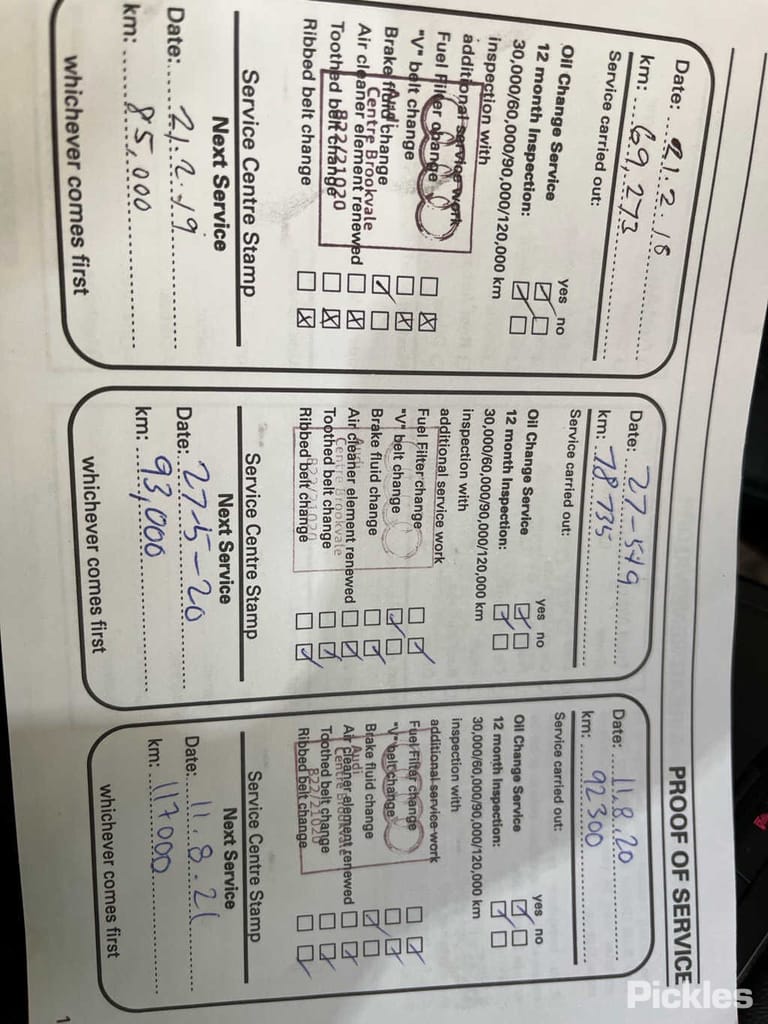 PROOF OF SERVICE
Date: 21.2.18
km: 69,273
Service carried out:
yes no
Oil Change Service
12 month Inspection:
30,000/60,000/90,000/120,000 km
inspection with
additional service work
Fuel Filter change
"V" belt change
Brake fluid change
Air cleaner element renewed
Toothed belt change
Ribbed belt change
Audi
Centre Brookvale
B22/21020
Service Centre Stamp
Next Service
Date: 21.2.19
km: 85,000
whichever comes first
Date: 27-5-19
km: 78735
Service carried out:
yes no
Oil Change Service
12 month Inspection:
30,000/60,000/90,000/120,000 km
inspection with
additional service work
Fuel Filter change
"V" belt change
Brake fluid change
Air cleaner element renewed
Toothed belt change
Ribbed belt change
Audi
Centre Brookvale
B22/21020
Service Centre Stamp
Next Service
Date: 27-5-20
km: 93,000
whichever comes first
Date: 11.8.20
km: 92300
Service carried out:
yes no
Oil Change Service
12 month Inspection:
30,000/60,000/90,000/120,000 km
inspection with
additional service work
Fuel Filter change
"V" belt change
Brake fluid change
Air cleaner element renewed
Toothed belt change
Ribbed belt change
Audi
Centre Brookvale
B22/21020
Service Centre Stamp
Next Service
Date: 11.8.21
km: 117000
whichever comes first
1
Pickles